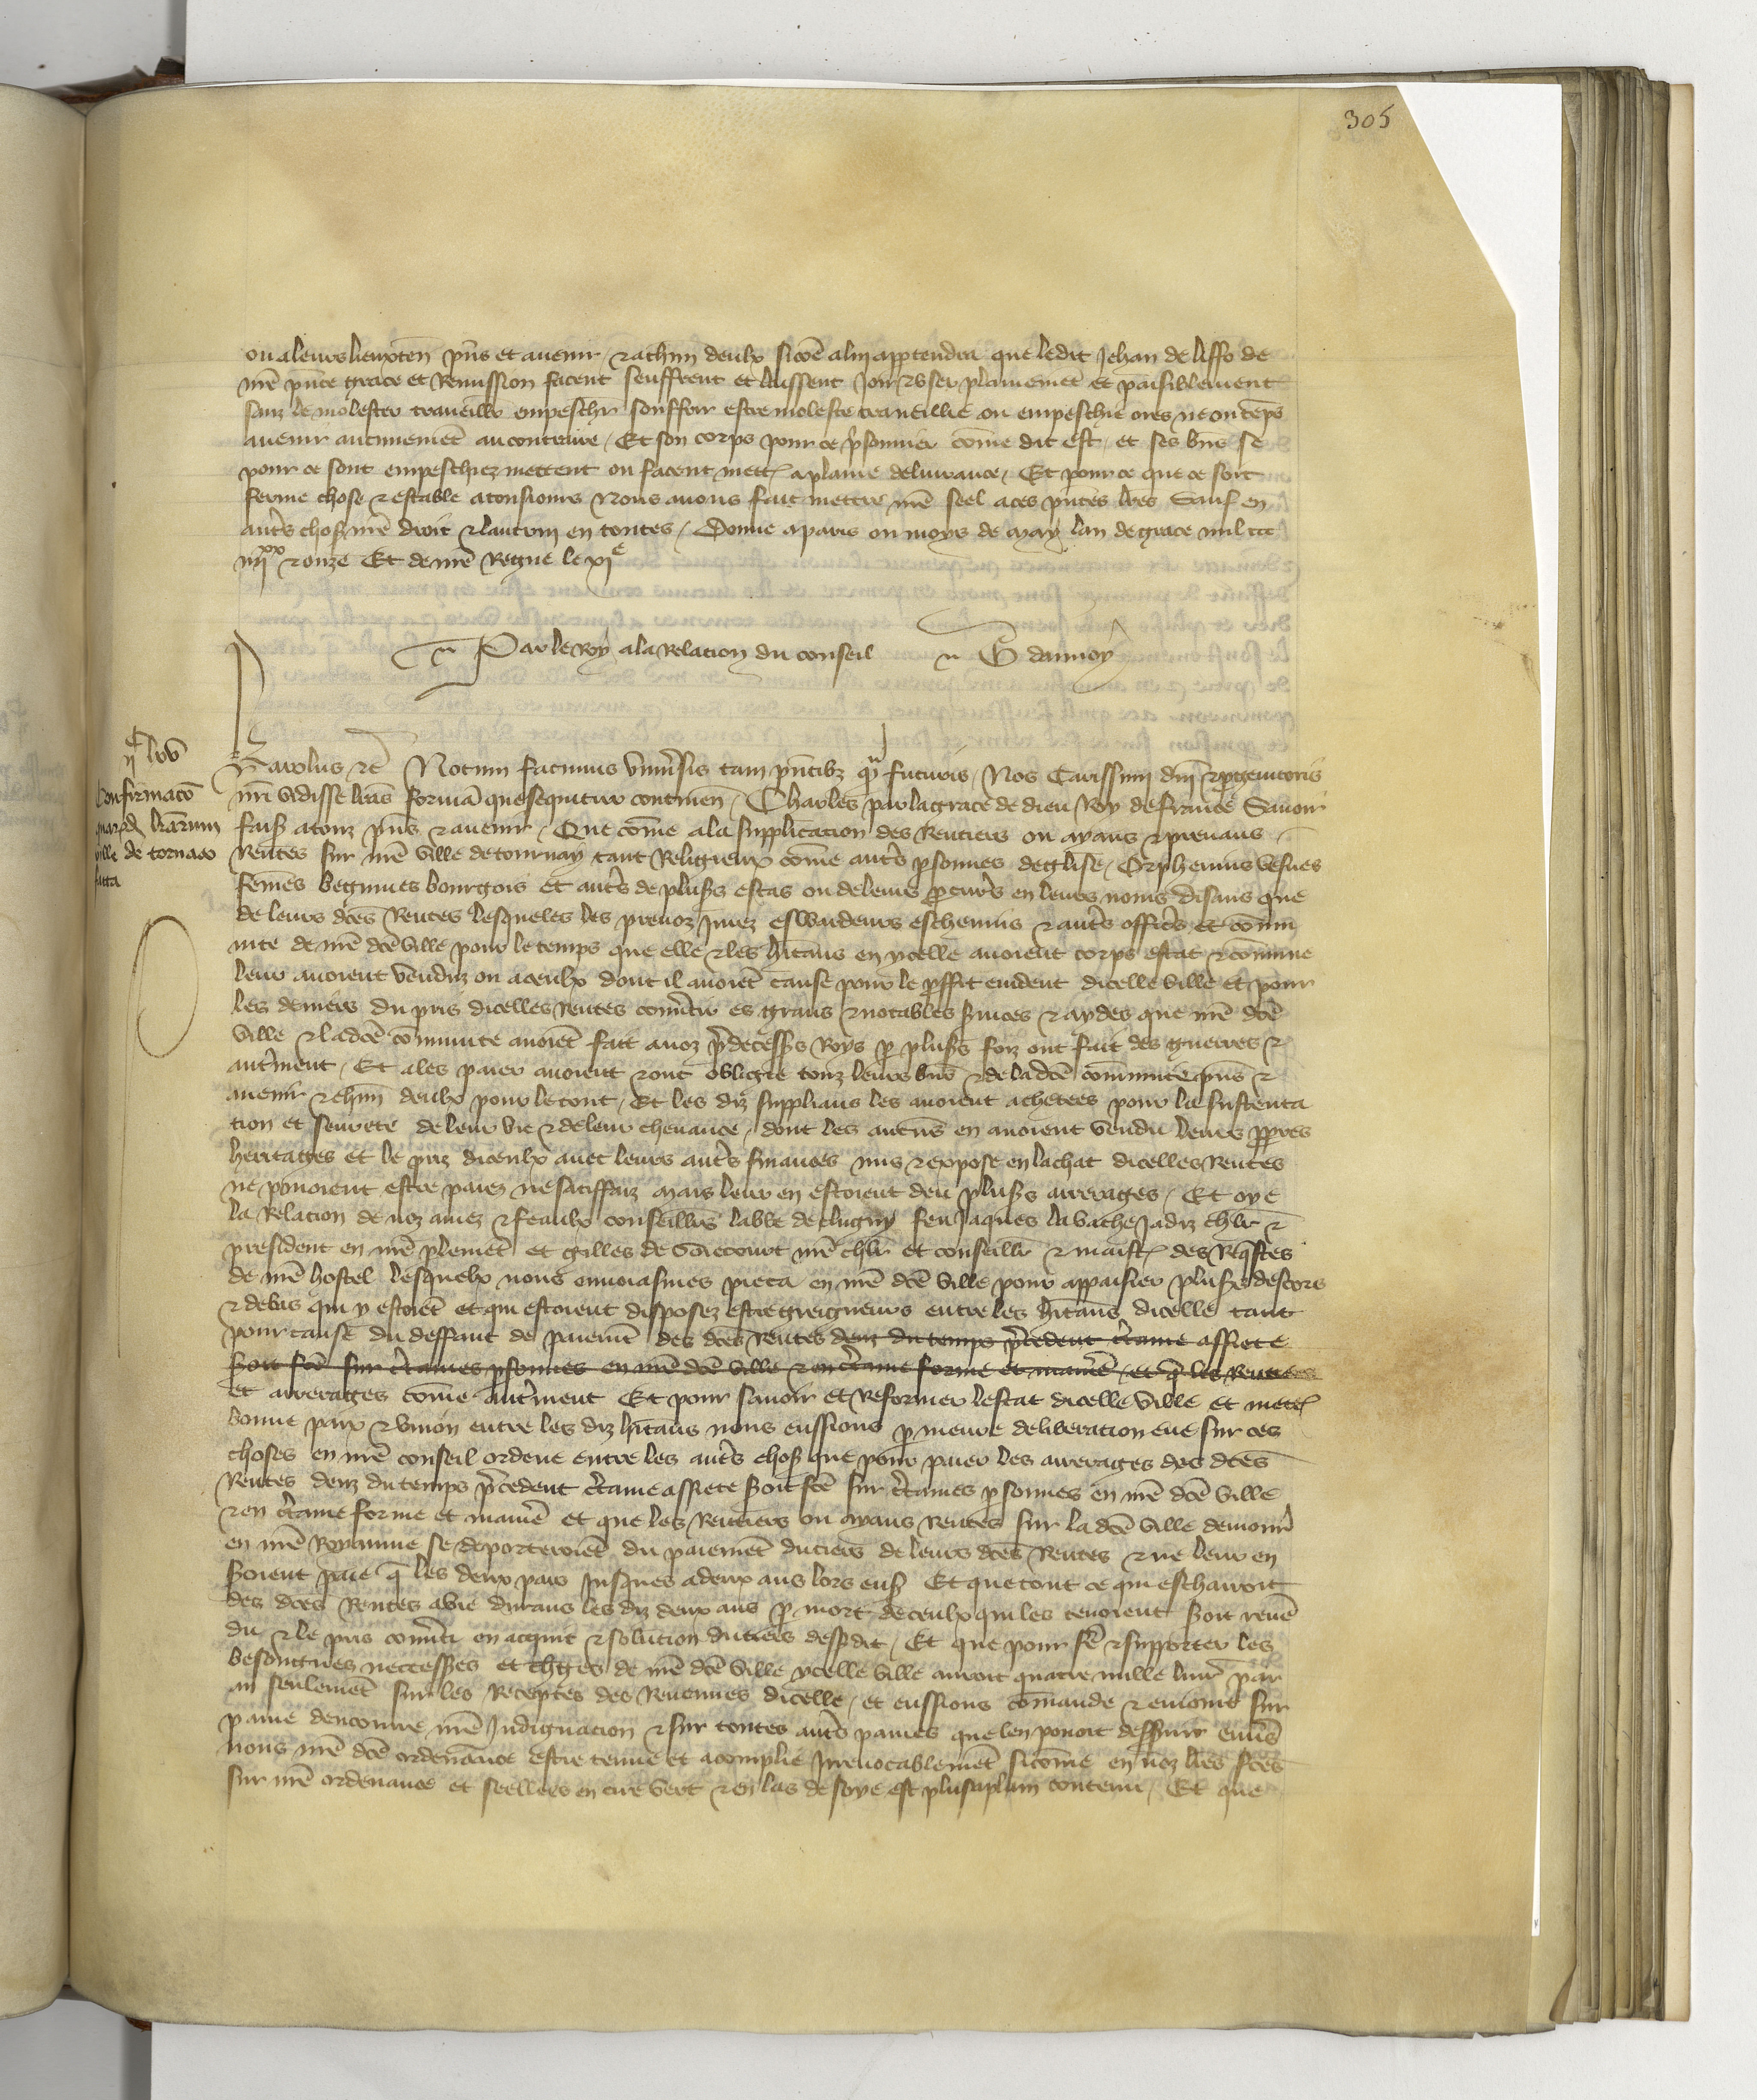 305
ou a leurs lieuxten̄ pn̄s et auenir ⁊ a chūn deulx sicōe a luy appartendra que ledit Jehan de liffo de
nr̄e pn̄te grace et Remission facent seuffrent et laissent Joir ⁊ vser plainemēt et paisiblement
sanz le molester trauaillr empeschr̄ souffrir estre moleste trauaillie ou empeschie ores ne on tēps
auenir aucunemēt au contraire / Et son corps pour ce p̄sonnier cōme dit est / et ses bn̄s se
pour ce sont empeschiez mettent ou facent mettr̄ a plaine deliurance / Et pour ce que ce soit
ferme chose ⁊ estable a tousiours Nous auons fait mettre nr̄e seel a ces pn̄tes lr̄es Sauf en
aut̄s choses nr̄e droit ⁊ lautruy en toutes / Donne a paris ou moys de May lan de grace mil ccc
iiijxx ⁊ onze Et de nr̄e Regne le xje
Par le Roy a la Relacion du conseil G daunoy
ijc lvv
Confirmacō
quarūdā lr̄arum
ville de tornaco
facta
Karolus ⁊c̄ Notum facimus vniūsis tam pn̄tibz q̄ futuris / Nos Carissimi dn̄i ⁊ p̄genitoris
nr̄i vidisse lr̄as formā que sequitur continen̄ / Charles par la grace de dieu Roy de france Sauoir
fais̄ a touz pn̄s ⁊ auenir / Que cōme a la supplicacion des Rentiers ou ayans ⁊ prenans
Rentes sur nr̄e ville de tournay tant Religieux cōme aut̄s p̄sonnes deglise / Orphenins vesues
fēmes beguines bourgois et aut̄s de plus̄s estas ou de leurs p̄cur̄s en leurs noms disans que
de leurs dc̄es Rentes lesqueles les preuoz Jurez eswardeurs escheuins ⁊ aut̄s offic̄s et cōmu
nite de nr̄e dc̄e ville pour le temps que elle ⁊ les hīt̄ans en ycelle auoient corps estat ⁊ cōmune
leur auoient venduz ou a ceulx dont il auoiēt cause pour le p̄ffit euident dicelle ville et pour
les deniers du pris dicelles Rentes conūtir es grans ⁊ notables s̄uices ⁊ aydes que nr̄e dc̄e
ville ⁊ la dc̄e cōmunite auoiēt fait a noz p̄decess̄s Roys p̄ plus̄s foiz ont fait des guerres ⁊
autr̄ment / Et a les paier auoient ⁊ ont obligie touz leurs bn̄s ⁊ de la dc̄e cōmunite pn̄s ⁊
auenir ⁊ chūn deulx pour le tout / Et les diz supplians les auoient achetees pour la sustenta
tion et seurete de leur vie ⁊ de leur cheuance / dont les aucūs en auoient vendu leurs p̄pres
heritages et le priz diceulx auec leurs aut̄s finances mis ⁊ expose en lachat dicelles Rentes
ne pouoient estre paiez ne satiffaiz mais leur en estoient deu plus̄s arrerages / Et oye
la Relacion de noz amez ⁊ feaulx conseillr̄s labbe de clugny feu Jaques la vache Jadiz chlr̄ ⁊
president en nr̄e plemēt et gilles de soiecourt nr̄e chlr̄ et conseillr̄ ⁊ maistr̄ des Req̄stes
de nr̄e hostel lesquelx nous enuoiasmes pieca en nr̄e dc̄e ville pour appaisier plus̄s descors
⁊ debas qui y estoiēt et qui estoient disposez estre greigneurs entre les hīt̄ans dicelle tant
pour cause du deffaut de paiemēt des dc̄es Rentes deuz du temps p̄cedent c̄taine assiete
soit fc̄e sur c̄taines p̄sonnes en nr̄e dc̄e ville ⁊ en c̄taine forme et manr̄e / et q̄ les Rentiers
et arrerages cōme autr̄ment Et pour sauoir et Reformer lestat dicelle ville et mettr̄
bonne paix ⁊ vnion entre les diz hīt̄ans nous eussions p̄ meure deliberacion eue sur ces
choses en nr̄e conseil ordene entre les aut̄s chos̄ que pour paier les arrerages des dc̄es
Rentes deuz du temps p̄cedent c̄taine assiete soit fc̄e sur c̄taines p̄sonnes en nr̄e dc̄e ville
⁊ en c̄taine forme et manr̄e et que les Rentiers ou ayans Rentes sur la dc̄e ville demour̄
en nr̄e Royaume se deporteroiēt du paiemēt du tiers de leurs dc̄es Rentes ⁊ ne leur en
soient paie q̄ les deux pars Jusques a deux ans lors ens̄ Et que tout ce qui escharroit
des dc̄es Rentes a vie durans les diz deux ans p̄ mort de ceulx qui les tenoient soit reuē
du ⁊ le pris conūti en acquit ⁊ solucion du tiers dess̄dit / Et que pour fr̄e ⁊ supporter les
besoingnes neccess̄es et chges de nr̄e dc̄e ville ycelle ville auroit quatre mille liur̄ par
an seulemēt sur les Receptes des Reuenues dicelle / et eussions cōmande ⁊ enioint sur
paine dencourre nr̄e Indignacion ⁊ sur toutes aut̄s paines que len pouoit dess̄uir enūs
nous nr̄e dc̄e ordenance estre tenue et acomplie Irreuocablemēt sicōme en noz lr̄es fc̄es
sur nr̄e ordenance et seellees en cire vert ⁊ en las de soye est plus a plain contenu / Et que